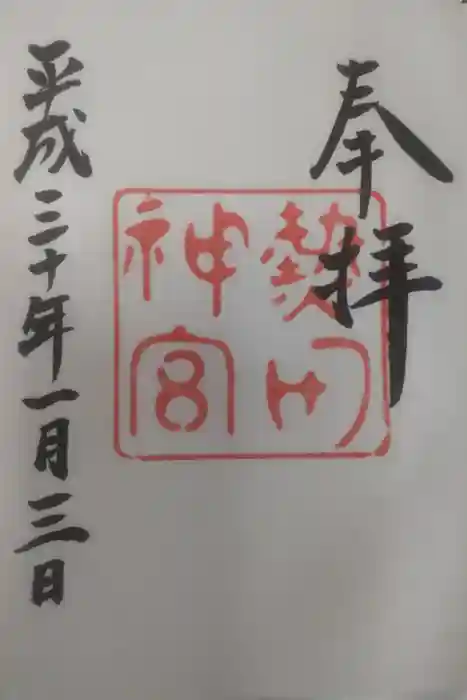 奉拝
熱田
神宮
平成三十年一月三日